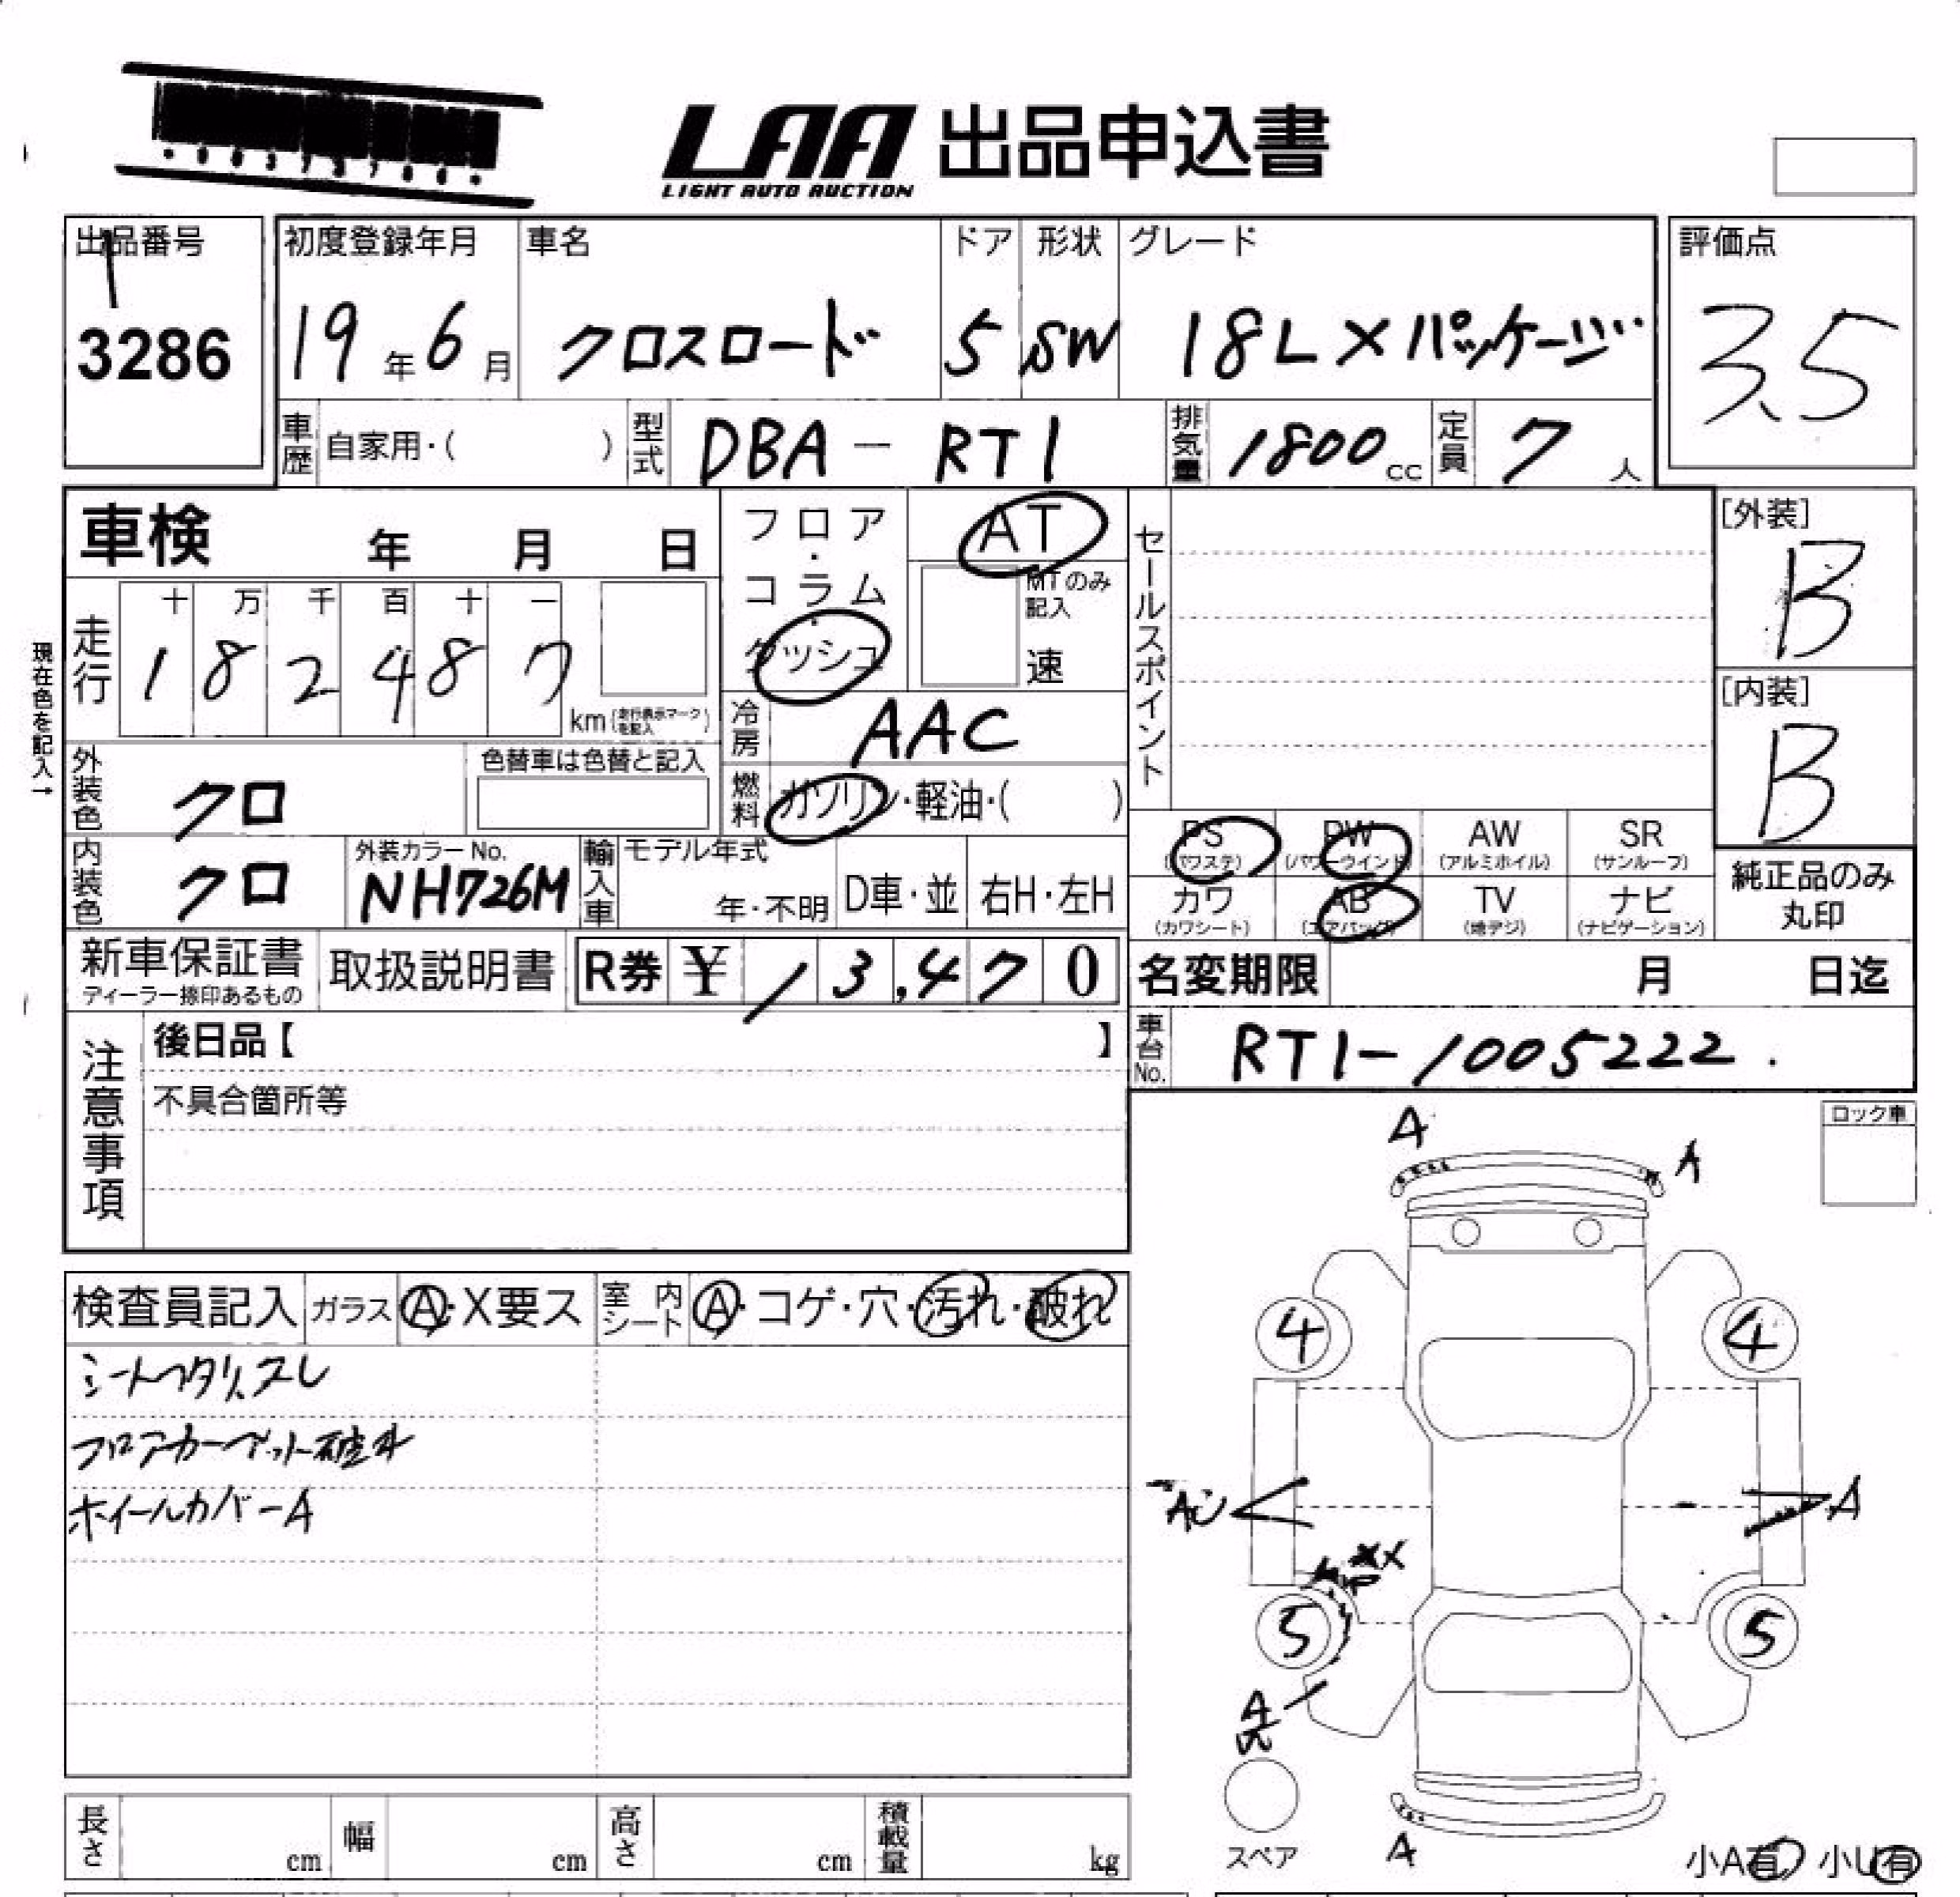 LAA 出品申込書
LIGHT AUTO AUCTION
出品番号
1
3286
初度登録年月
19年6月
車名
クロスロード
ドア
5
形状
SW
グレード
18L Xパッケージ
評価点
3.5
車歴 自家用・( )
型式 DBA - RT1
排気量 1800cc
定員 7人
車検 年 月 日
フロア・コラム・ダッシュ
AT
MTのみ記入
速
セールスポイント
[外装]
B
現在色を記入→
走行
十 万 千 百 十 一
1 8 2 4 8 7
km(走行表示マークを記入)
冷房 AAC
[内装]
B
外装色 クロ
色替車は色替と記入
燃料 ガソリン・軽油・( )
PS (パワステ)
PW (パワーウインド)
AW (アルミホイル)
SR (サンルーフ)
内装色 クロ
外装カラーNo.
NH726M
輸入車
モデル年式
年・不明
D車・並
右H・左H
カワ (カワシート)
AB (エアバッグ)
TV (地デジ)
ナビ (ナビゲーション)
純正品のみ
丸印
新車保証書
ディーラー捺印あるもの
取扱説明書
R券 ¥ 13,470
名変期限 月 日迄
注意事項
後日品【 】
不具合箇所等
車台No. RT1-1005222.
ロック車
A
A
検査員記入 ガラス A・X要ス 室内シート A・コゲ・穴・汚れ・破れ
シートヘタリ、スレ
フロアカーペット破れ
ホイールカバーA
4
4
A
XX
5
5
A
スペア
A
小A有 小U有
長さ cm
幅 cm
高さ cm
積載量 kg